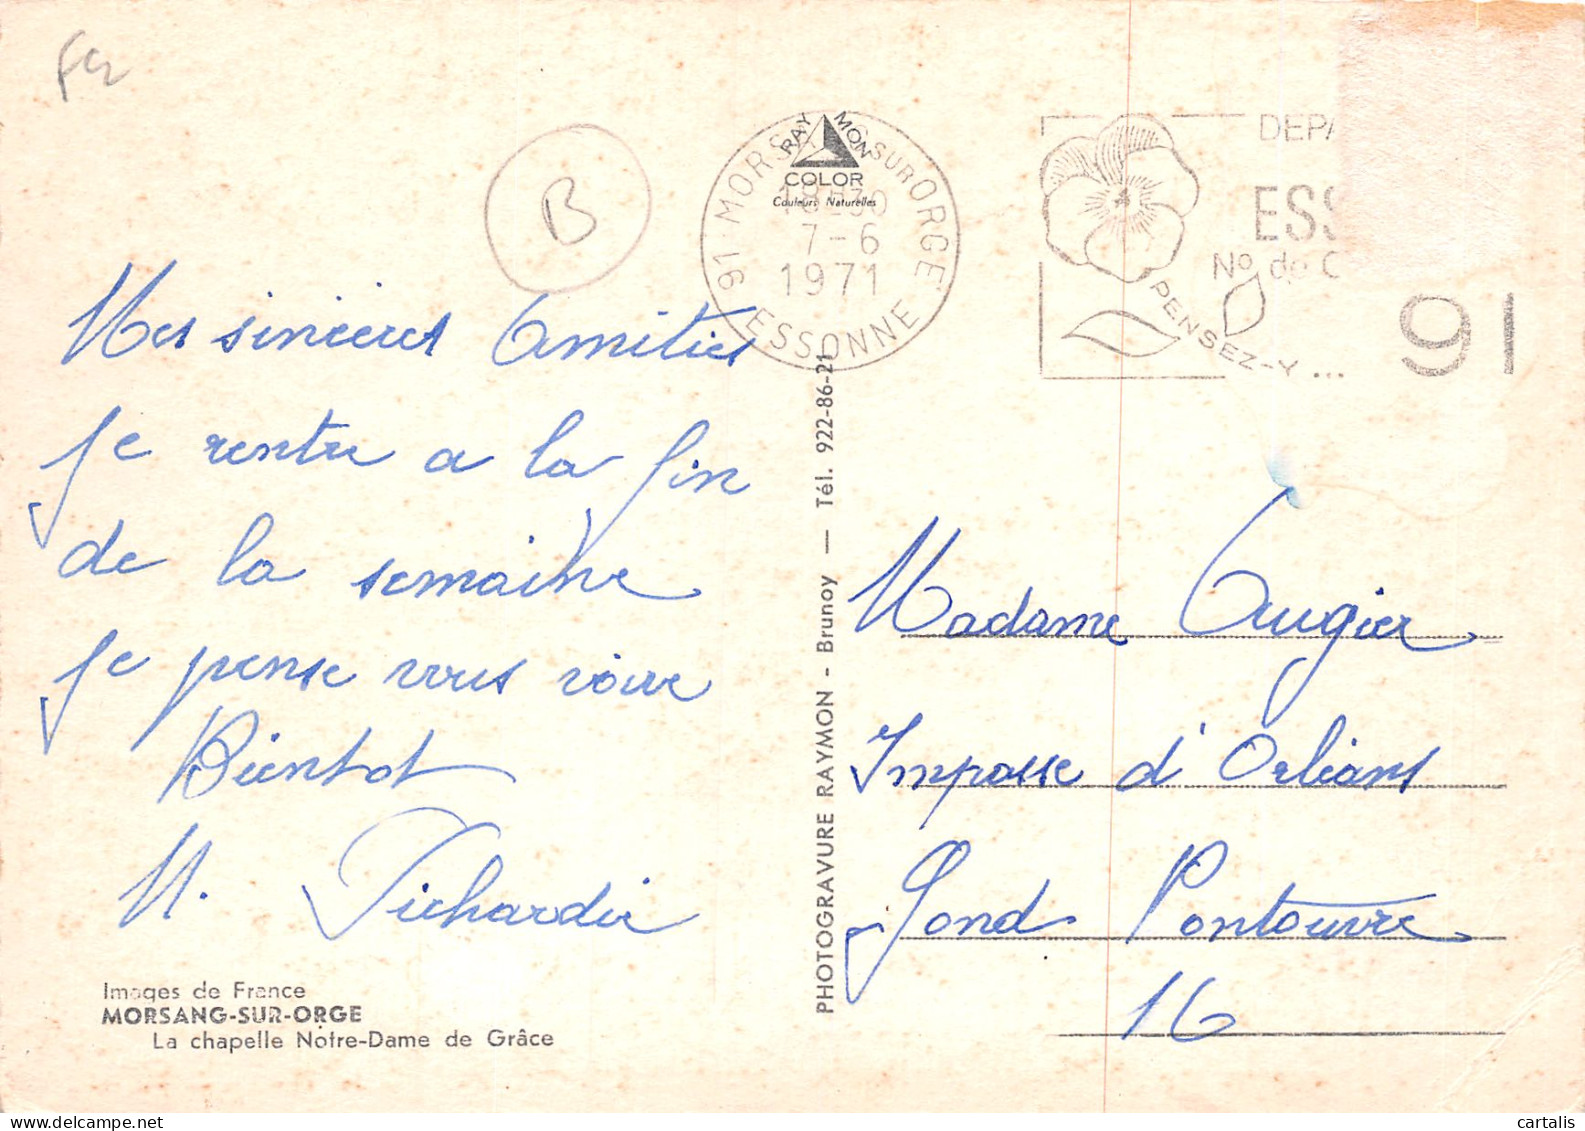 B
RAYMON
COLOR
Couleurs Naturelles
91 MORSANG SUR ORGE
18H30
7-6
1971
ESSONNE
DEPA
ESS
No de C
91
PENSEZ-Y...
Mes sincères Amitiés
je rentre a la fin
de la semaine
je pense vous voire
Bientot
M.
Images de France
MORSANG-SUR-ORGE
La chapelle Notre-Dame de Grâce
PHOTOGRAVURE RAYMON - Brunoy — Tél. 922-86-21
Madame Augier
Impasse d'Orléans
Gond Pontouvre
16
cartalis